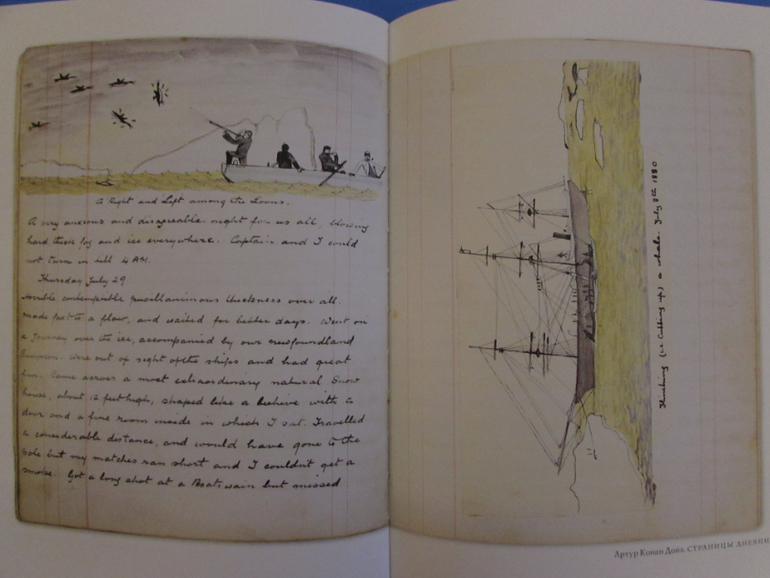 A Right and Left among the Loons.
A very anxious and disagreeable night for us all, blowing
hard thick fog and ice everywhere. Captain and I could
not turn in till 4 AM.
Thursday July 29
horrible contemptible pusillanimous thickness over all.
made fast to a flaw, and waited for better days. Went on
a journey over the ice, accompanied by our newfoundland
were out of sight of the ships and had great
fun. Came across a most extraordinary natural Snow
house, about 12 feet high, shaped like a beehive with a
door and a fine room inside in which I sat. Travelled
a considerable distance, and would have gone to the
pole but my matches ran short and I couldn't get a
smoke. Got a long shot at a Boatswain but missed
Flenching (i.e. Cutting up) a whale. July 8th 1880
Артур Конан Дойл. СТРАНИЦЫ ДНЕВНИ